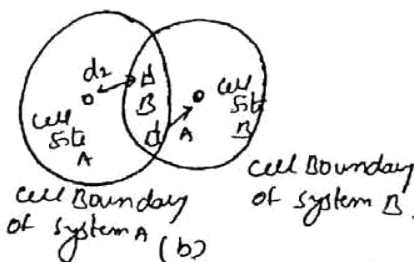 d2
d
B
Cell
Site
A
d
A
Cell
Site
B
Cell Boundary
of System A
(b)
Cell Boundary
of System B.